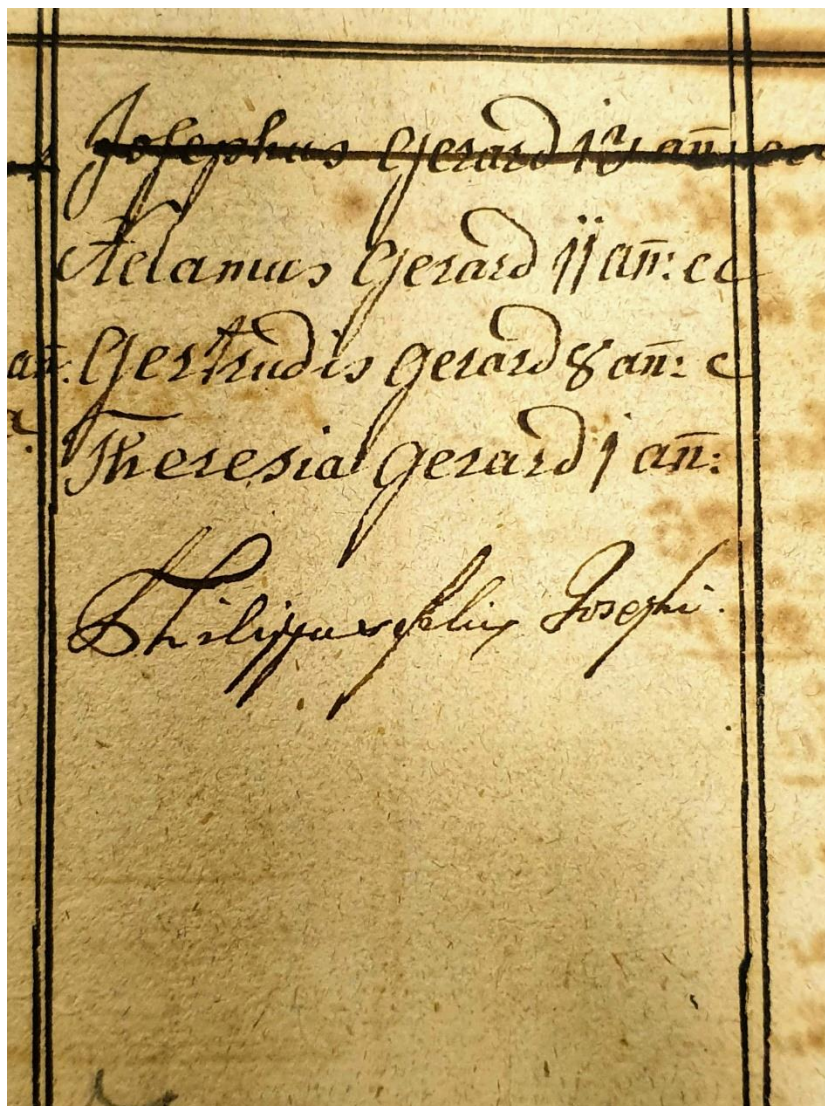 Josephus Gerard 13 an̄:
Adamus Gerard 11 an̄: cc
an̄: Gertrudis Gerard 8 an̄: c
Theresia Gerard 1 an̄:
Philippus felix Josephi.